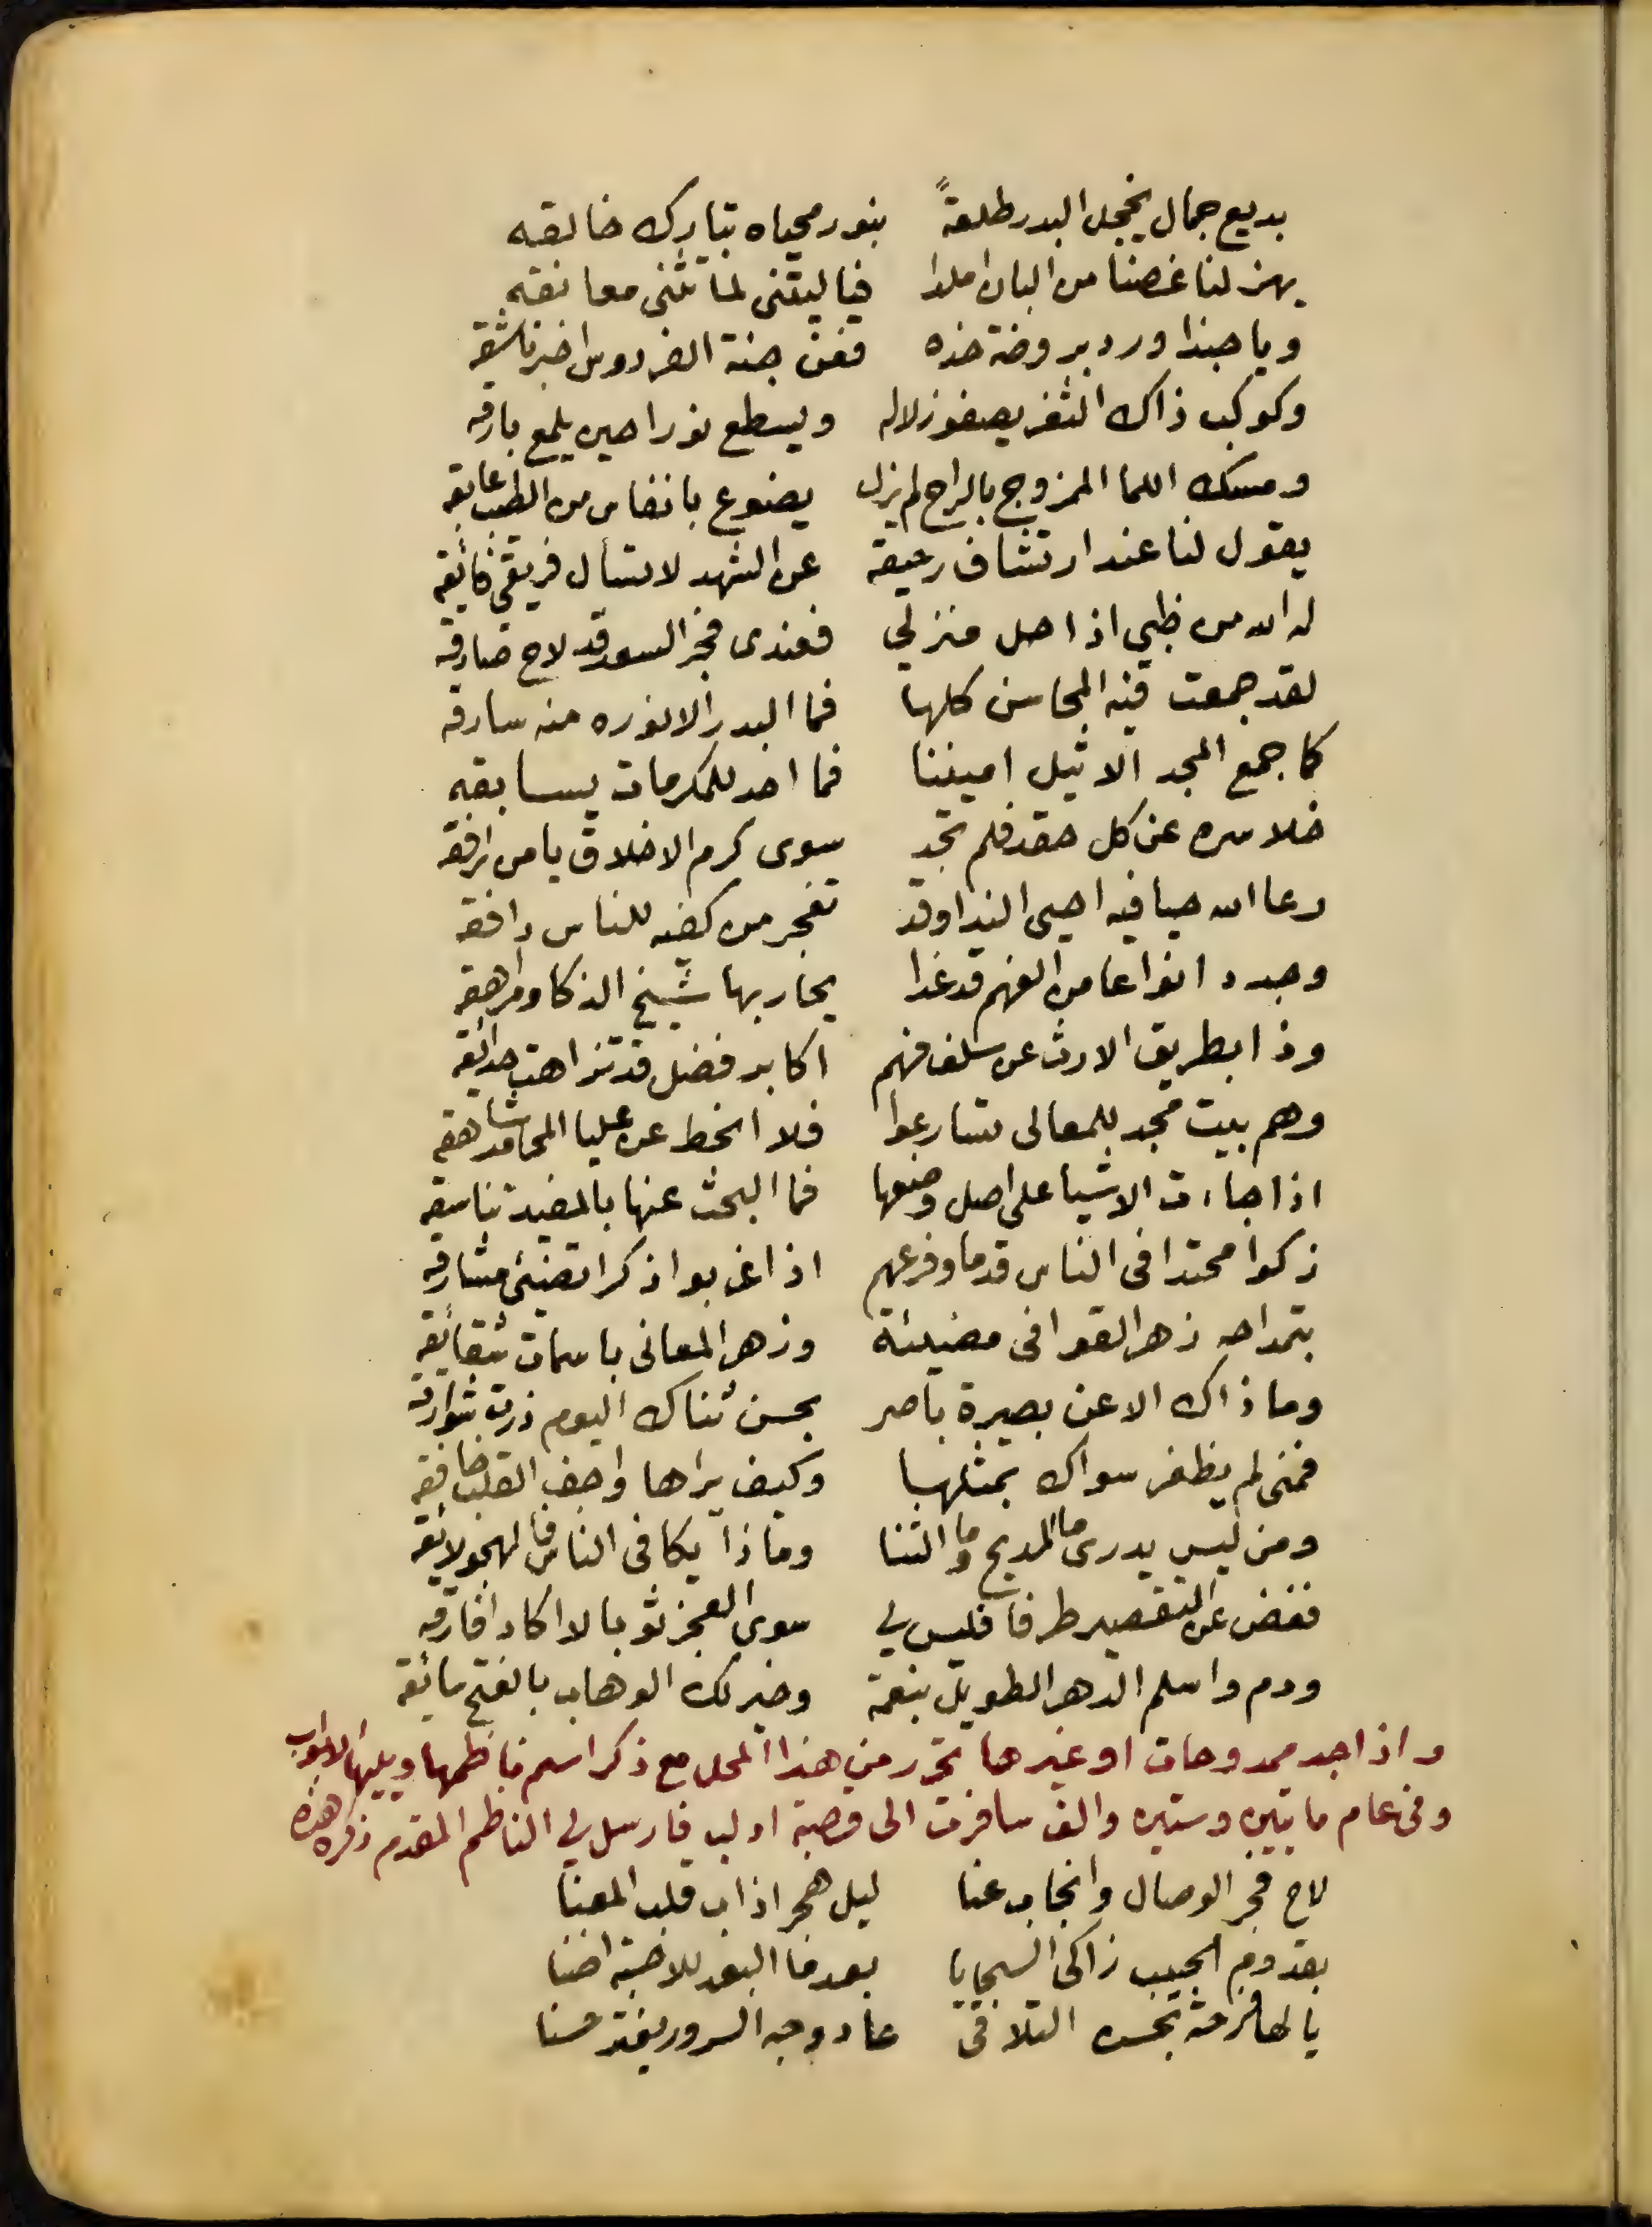 بديع جمال يخجل البدر طلعةً بنور محياه تبارك خالقه
يهز لنا غصنا من البان املدا فيا ليتنى لما تثنى معانقه
ويا حبذا ورد بروضة خده فعن جنة الفردوس اخبر ناشقه
وكوكب ذاك الثغر يصفو زلاله ويسطع نورا حين يلمع بارقه
ومسك اللما الممزوج بالراح لم يزل يضوع بانفاس من الطيب عابقه
يقول لنا عند ارتشاف رحيقه عن الشهد لا تسأل فريقي فائقه
له الله من ظبي اذا حل منزلي فعندى فجر السعد قد لاح صادقه
لقد جمعت فيه المحاسن كلها فما البدر الا نوره منه سارقه
كما جمع المجد الاثيل اميننا فما احد للمكرمات يسابقه
خلا سره عن كل حقد فلم تجد سوى كرم الاخلاق يا من ترافقه
رعا الله حيا فيه احيى الندا وقد تفجر من كفيه للناس دافقه
وجدد انواعا من الفهم قد غدا يحار بها شيخ الذكا ومراهقه
وذا بطريق الارث عن سلف فهم اكابر فضل قد تزاهت حدائقه
وهم بيت مجد للمعالى تسارعوا فلا انحط عن عليا المحامد شاهقه
اذا جاءت الاشيا على اصل وضعها فما البحث عنها بالمفيد تناسقه
زكوا محتدا فى الناس قدما وفرعهم اذا غربوا ذكرا تضيئ مشارقه
بتمداحه زهر القوافى مضيئة وزهر المعانى باسمات شقائقه
وما ذاك الا عن بصيرة باصر بحسن ثناك اليوم ذرت شوارقه
فمنى لم يظفر سواك بمثلها وكيف يراها واجف القلب خافقه
ومن ليس يدرى ما المديح وما الثنا وماذا يكافى الناس فالهجو لائقه
فغض عن التقصير طرفا فليس لي سوى العجز ثوبا لا اكاد افارقه
ودم واسلم الدهر الطويل بنعمة وخير لك الوهاب بالفتح سائقه
واذا جد ممدوحات او غيرها تحرر من هذا المحل مع ذكر اسم ناظمها ويليها الابواب
وفى عام مايتين وستين والف سافرت الى قصبة ادلب فارسل لي الناظم المقدم ذكره هذه
لاح فجر الوصال وانجاب عنا ليل هجر اذاب قلب المعنا
بقدوم الحبيب زاكى السجايا بعد ما البعد للاحبة اضنا
يا لها فرحة بحسن التلاقى عاد وجه السرور يفتر حسنا